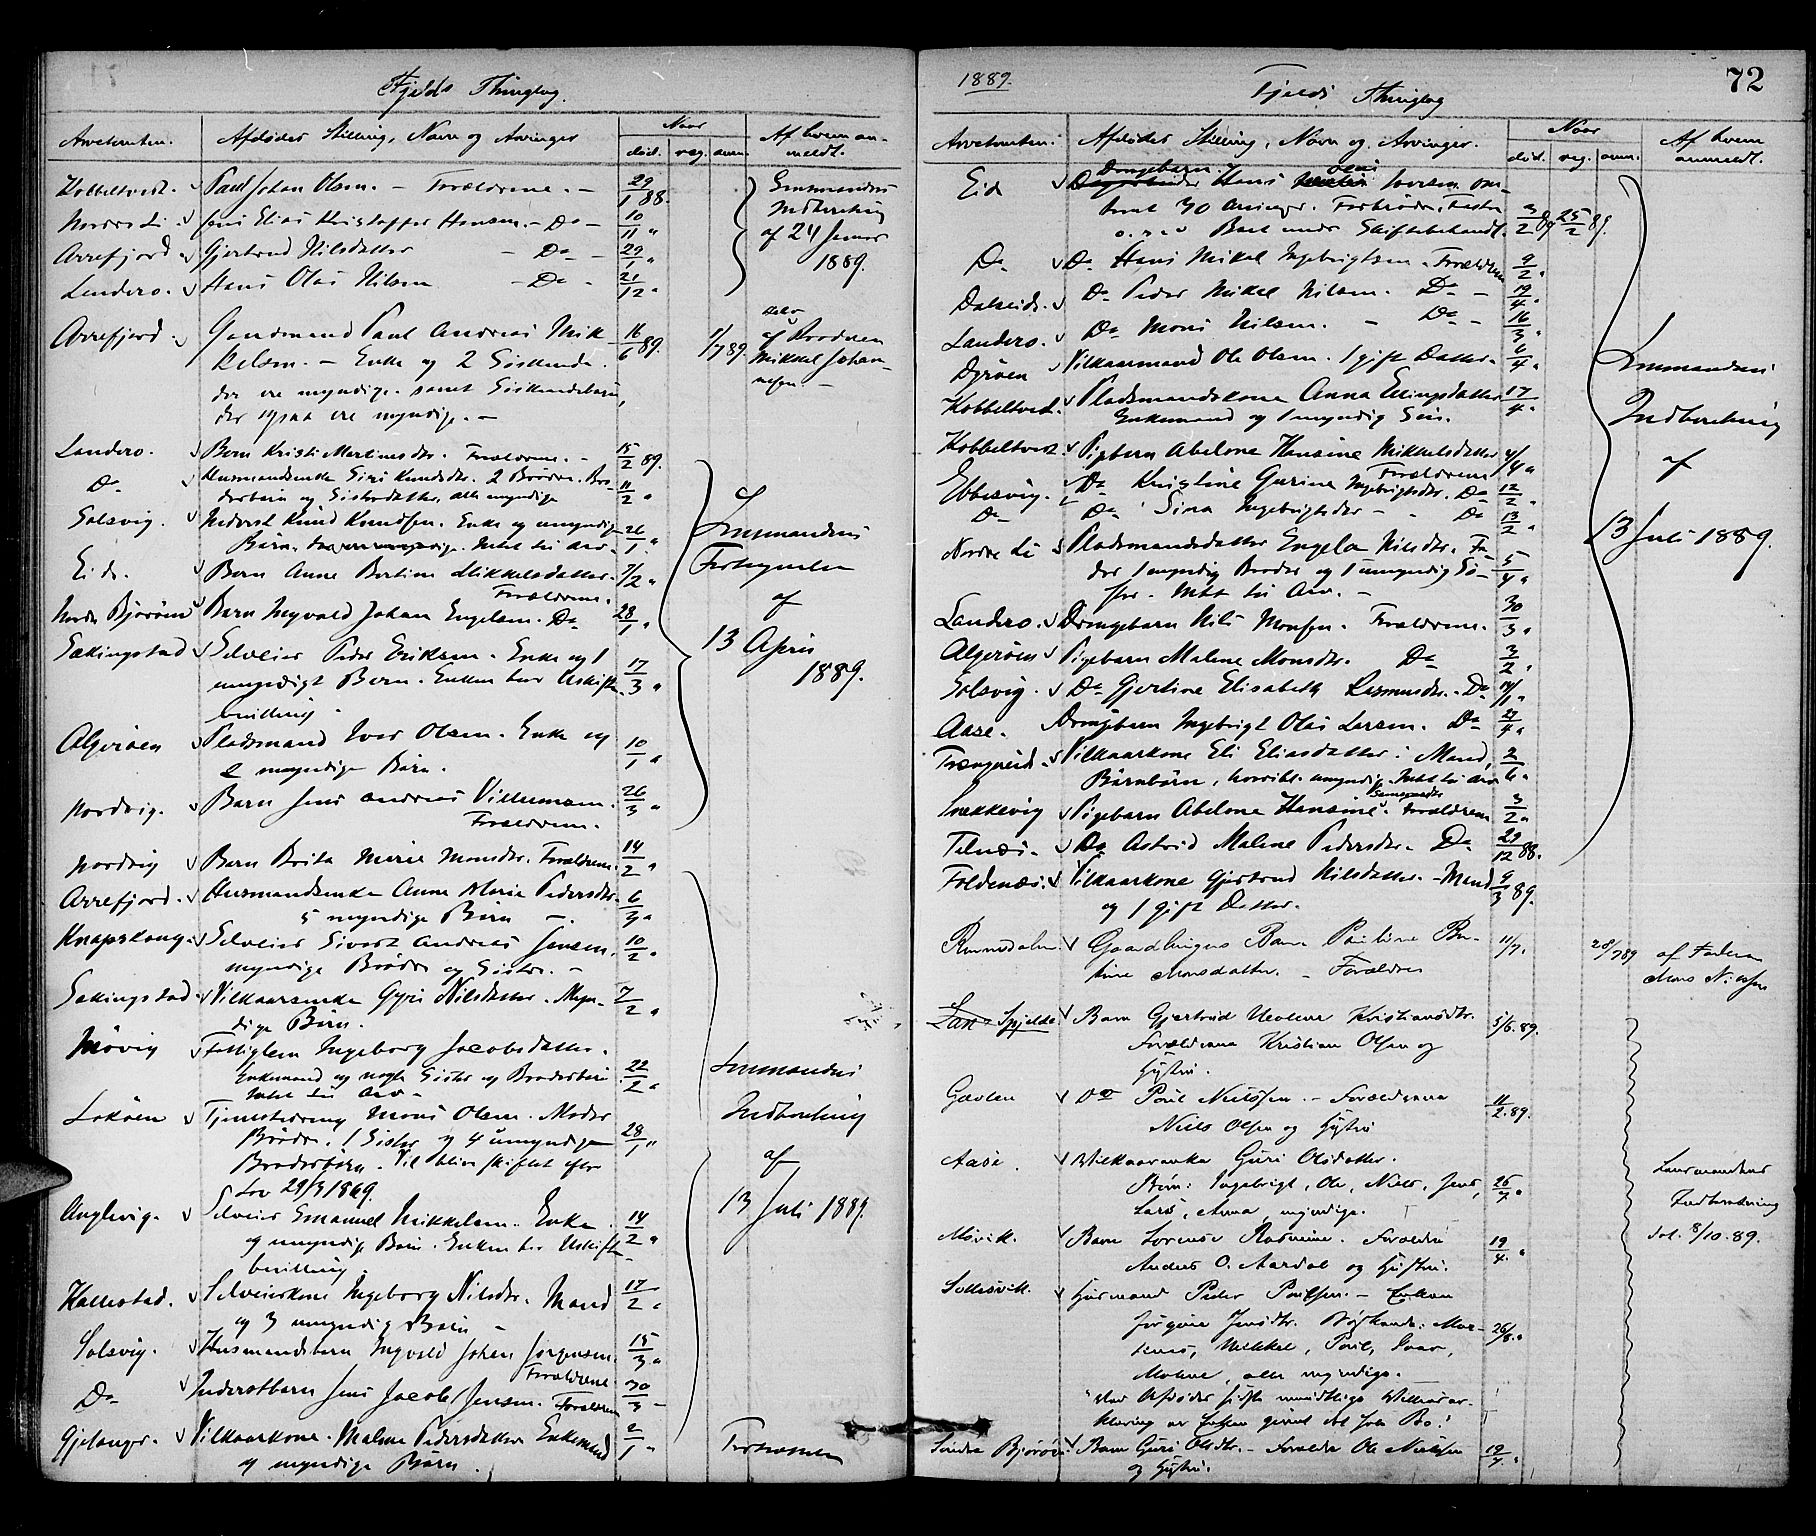 Fjelds Thinglag.
Arvetomten. Afdødes Stilling, Navn og Arvinger Naar Af hvem an-
død. reg. anm. meldt.
Kobbeltvedt. Paul Johan Olsen. - Forældrene. - 29/1 88. Lensmandens
Nordre Li. Jens Elias Kristoffer Hansen. - Do - 10/11 " Indberetning
Arrefjord Gjertrud Nilsdatter - Do - 29/1 " af 24 Januar
Landero. Hans Olai Nilsen - Do - 21/12 " 1889.
Arrefjord. Gaardmand Paul Andreas Mik- 16/6 89. 1/7 89 af Broderen
kelsen. - Enke og 2 Søskende Mikkel Johan-
der ere myndige samt Søskendebørn, nesen -
der ogsaa ere myndige. -
Landero. Barn Kristi Martinesdtr. Forældrene. - 15/2 89.
Do Husmandsenke Siri Knudsdtr. 2 Brødre. Bro- 11/2 "
derbørn og Søsterdatter, alle myndige
Solsvig. Inderst Knud Knudsen. Enke og umyndige 26/1 " Lensmandens
Børn. Intet til Arv.
Eide. Barn Anne Bertine Mikkelsdatter. 7/2 " Fortegnelse
Forældrene.
Nordre Bjorøen Barn Ingvald Johan Engelsen. Do 28/1 " af
Sekingstad Selveier Peder Eriksen. Enke og 1 17/3 " 13 April
umyndigt Barn. Enken har Uskifte- 1889.
bevilling.
Algerøen Pladsmand Iver Olsen. Enke og 10/1 "
2 myndige Børn.
Nordvig. Barn Jens Andreas Villumsen. 26/3 "
Forældrene.
Nordvig Barn Brita Marie Monsdtr. Forældrene. 14/2 "
Arrefjord. Husmandsenke Anne Marie Pedersdtr. 6/3 "
5 myndige Børn -.
Knapskong. Selveier Sivert Andreas Jensen. 10/2 "
myndige Brødre og Søster. -
Sekingstad. Vilkaarsenke Gyri Nilsdatter. Myn- 7/2 "
dige Børn.
Møvig Fattiglem Ingeborg Jacobsdatter.
Enkemand og nogle Søster og Broderbørn 22/2 " Lensmandens
Intet til Arv -
Lokøen Tjenestedreng Mons Olsen. Moder Indberetning
Brødre. 1 Søster og 4 umyndige 28/1 "
Broderbørn. Vil blive skiftet efter af
Lov 29/3 1869.
Anglevig. Selveier Emanuel Mikkelsen. Enke 14/2 " 13 Juli 1889.
og umyndige Børn. Enken har Uskifte-
bevilling
Kallestad. Selveierkone Ingeborg Nilsdtr. Mand 17/2 "
og 3 umyndige Børn -
Solsvig. Husmandsbarn Ingvald Johan Jørgensen. 15/3 "
Forældrene
Do Inderstbarn Jens Jacob Jensen. Forældrene 30/3 -
Gjelanger. Vilkaarkone. Malene Pedersdatter Enkemand 2/1 "
og myndige Børn.
1889. Fjelds Thinglag 72
Arvetomten. Afdødes Stilling, Navn og Arvinger. Naar Af hvem
død. reg. anm. anmeldt.
Eid Drengebarn Hans Iversen om-
trent 30 Arvinger. Forbrødre, Faster 3/2 89 25/2 89.
o.s.v. Boet under Skiftebehandl.
Do Do Hans Mikal Ingebrigtsen. Forældrene 9/2 "
Dalseid. Do Peder Mikel Nilsen. Do - 19/4 "
Landero. Do Mons Nilsen. - Do - 16/3 "
Dyrøen Vilkaarmand Ole Olsen. 1 gift Datter. 6/4 " Lensmandens
Kobbeltvedt. Pladsmandskone Anna Elingsdatter 17/4 "
Enkemand og 1 myndig Søn. Indberetning
Kobbeltvedt Pigebarn Abelone Hansine Mikkelsdatter 4/4 "
Forældrene af
Ebbesvig. Do Kristine Gurine Ingebrigtsdtr. Do 12/2 "
Do Do Sina Ingebrigtsdtr - " Do 13/2 " 13 Juli 1889.
Nordre Li Pladsmandsdatter Engelea Nilsdtr. Fa-
der 1 myndig Broder og 1 umyndig Sø- 5/4 "
ster. Intet til Arv. -
Landero. Drengebarn Nils Monsen. Forældrene. 30/3 "
Algerøen Pigebarn Malene Monsdtr. Do 3/2 "
Solsvig. Do Gjertine Elisabeth Rasmusdtr. - Do
Aase. Drengebarn Ingebrigt Olai Larsen. Do 27/4 "
Trengereid. Vilkaarkone Eli Eliasdatter. Mand, 2/6 "
Børnebørn, hvoribl. umyndige. Intet til Arv
Snekkevig Pigebarn Abelone Hansine Forældrene 3/2 "
Telnæs. Do Astrid Malene Pedersdtr. Do 29/12 88.
Foldenæs. Vilkaarkone Gjertrud Nilsdatter. - Mand 9/3 89.
og 1 gift Datter.
Rammedalen. Gaardbrugers Barn Pauline Ber- 11/7. 28/7 89 af Faderen
tine Monsdatter. - Forældre Mons Nielsen
Spjelde. Barn Gjertrud Nicoline Kristiansdtr. 5/6. 89.
Forældrene Kristian Olsen og
Hustru.
Gavlen Do Paul Nielssen. - Forældrene 11/2. 89.
Niels Olsen og Hustru
Aase. Vilkaarenke Guri Olsdatter. Lensmandens
Børn: Ingebrigt, Ole, Niels, Jens, 26/7 "
Lars, Anna, myndige. Indberetning
Møvik. Barn Lorense Rasmine. Forældre 19/4. " dat. 8/10. 89.
Anders O. Aardal og Hustru.
Sollesvik. Husmand Peder Paulsen. - Enken
Jørgine Jensdtr. Søskende: Mar- 26/8. "
tines, Mikkel, Paul, Ivar,
Malene, alle myndige. -
Ved Afdødes sidste mundtlige Villieser-
klæring er Enken givet det hele Bo!
Søndre Bjorøen. Barn Guri Olsdtr. - Forældre Ole Nielsen 19/7. "
og Hustru.